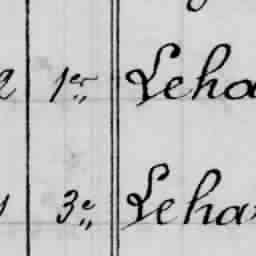 2 1er Leha
3e Leha